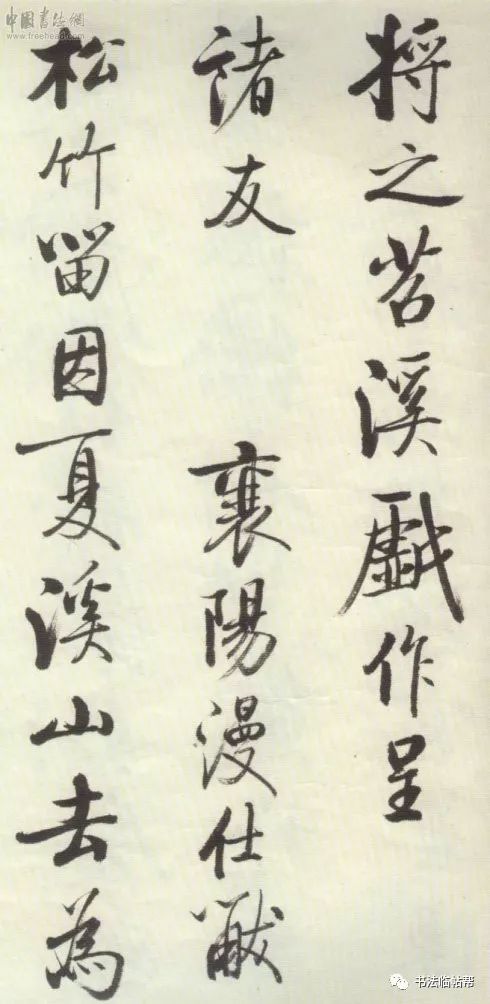 将之苕溪戲作呈
諸友 襄陽漫仕黻
松竹留因夏溪山去為
中国書法網
www.freehead.com
书法临帖帮